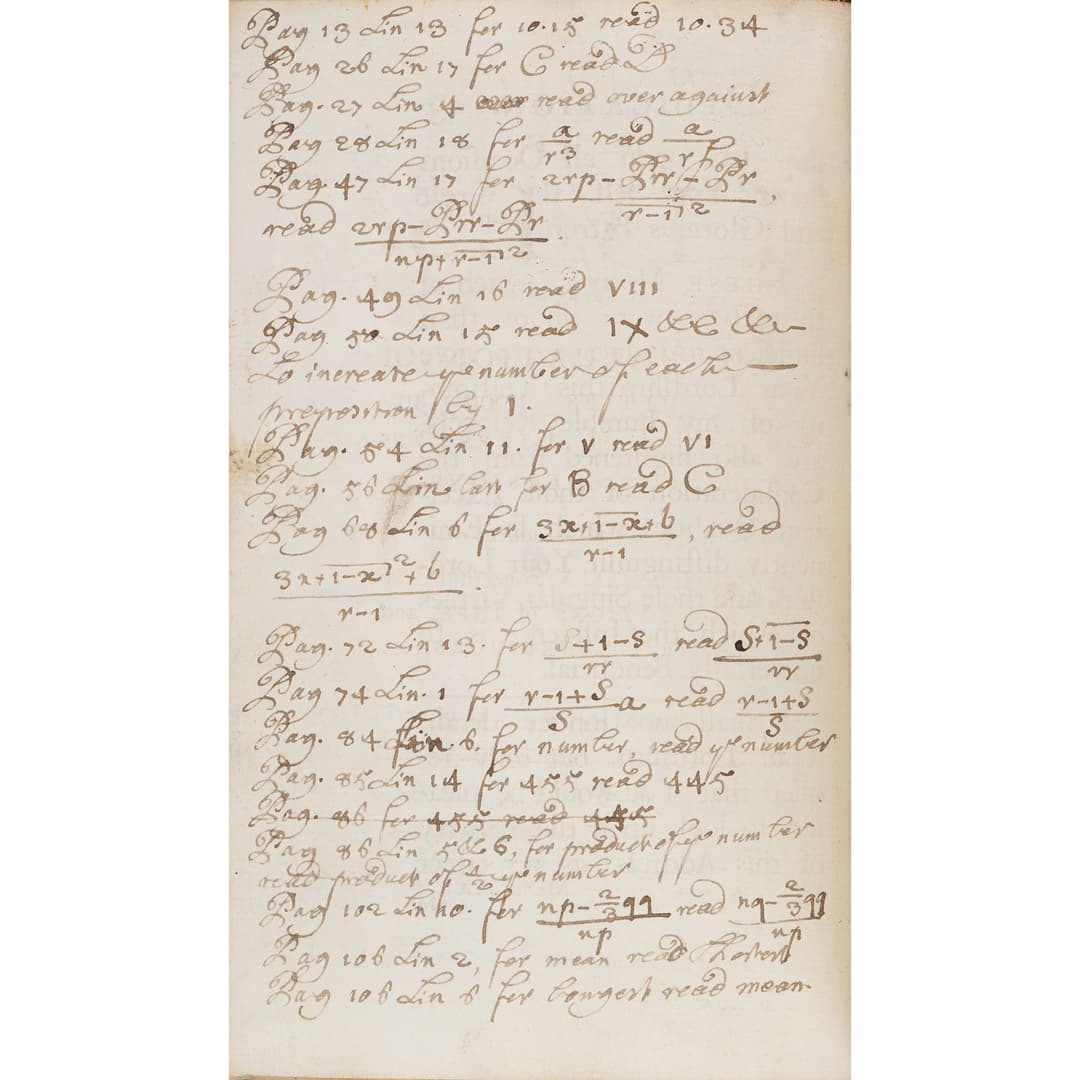 Pag 13 Lin 13 for 10.15 read 10.34
Pag 26 Lin 17 for C read D
Pag. 27 Lin 4 read over against
Pag 28 Lin 18 for a/r3 read a/rp
Pag. 47 Lin 17 for 2rp-Prr-Pr/r-1)2,
read 2rp-Prr-Pr/np+r-1)2.
Pag. 49 Lin 16 read VIII
Pag 50 Lin 15 read IX &c &c
to increase ye number of each
proposition by 1.
Pag. 54 Lin 11. for V read VI
Pag. 56 Lin last for B read C
Pag 68 Lin 6 for 3x+1-x+b/r-1, read
3x+1-x)2+b/r-1.
Pag. 72 Lin 13. for S+1-S/rr read S+1-S/rr
Pag 74 Lin. 1 for r-1+S/S a read r-1+S/S
Pag. 84 Lin 6. for number, read ye number
Pag. 85 Lin 14 for 455 read 445
Pag. 86 for 455 read 445
Pag 86 Lin 5 & 6, for product of ye number
read product of 1/2 ye number
Pag 102 Lin 10. for np-2/3qq/np read nq-2/3qq/np
Pag 106 Lin 2, for mean read Shortest
Pag 106 Lin 6 for longest read mean